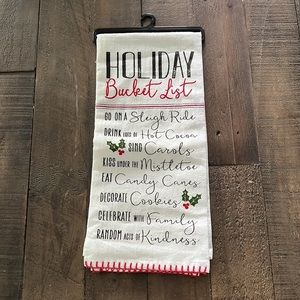 HOLIDAY
Bucket List
GO ON A Sleigh Ride
DRINK LOTS OF Hot Cocoa
SING Carols
KISS UNDER THE Mistletoe
EAT Candy Canes
DECORATE Cookies
CELEBRATE WITH Family
RANDOM ACTS OF Kindness